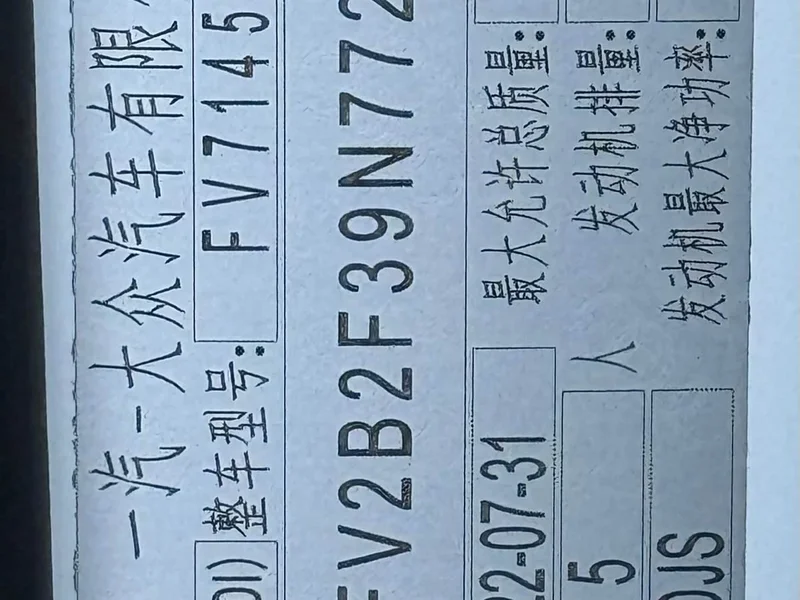 一汽-大众汽车有限
DI) 整车型号: FV7145
FV2B2F39N772
22-07-31 最大允许总质量:
5 人 发动机排量:
DJS 发动机最大净功率: